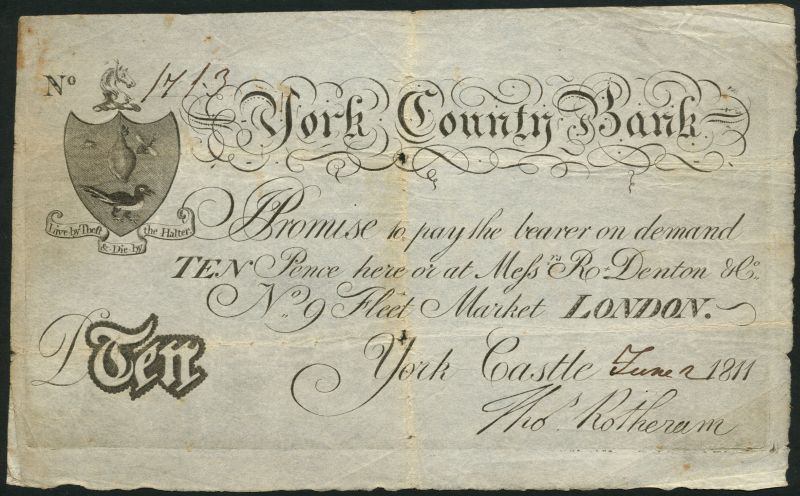 No 1713
York County Bank
Live by Theft & Die by the Halter
I Promise to pay the bearer on demand
TEN Pence here or at Messrs Rt Denton & Co.
No. 9 Fleet Market LONDON.
York Castle June 2 1811
D Ten
Thos Rotheram